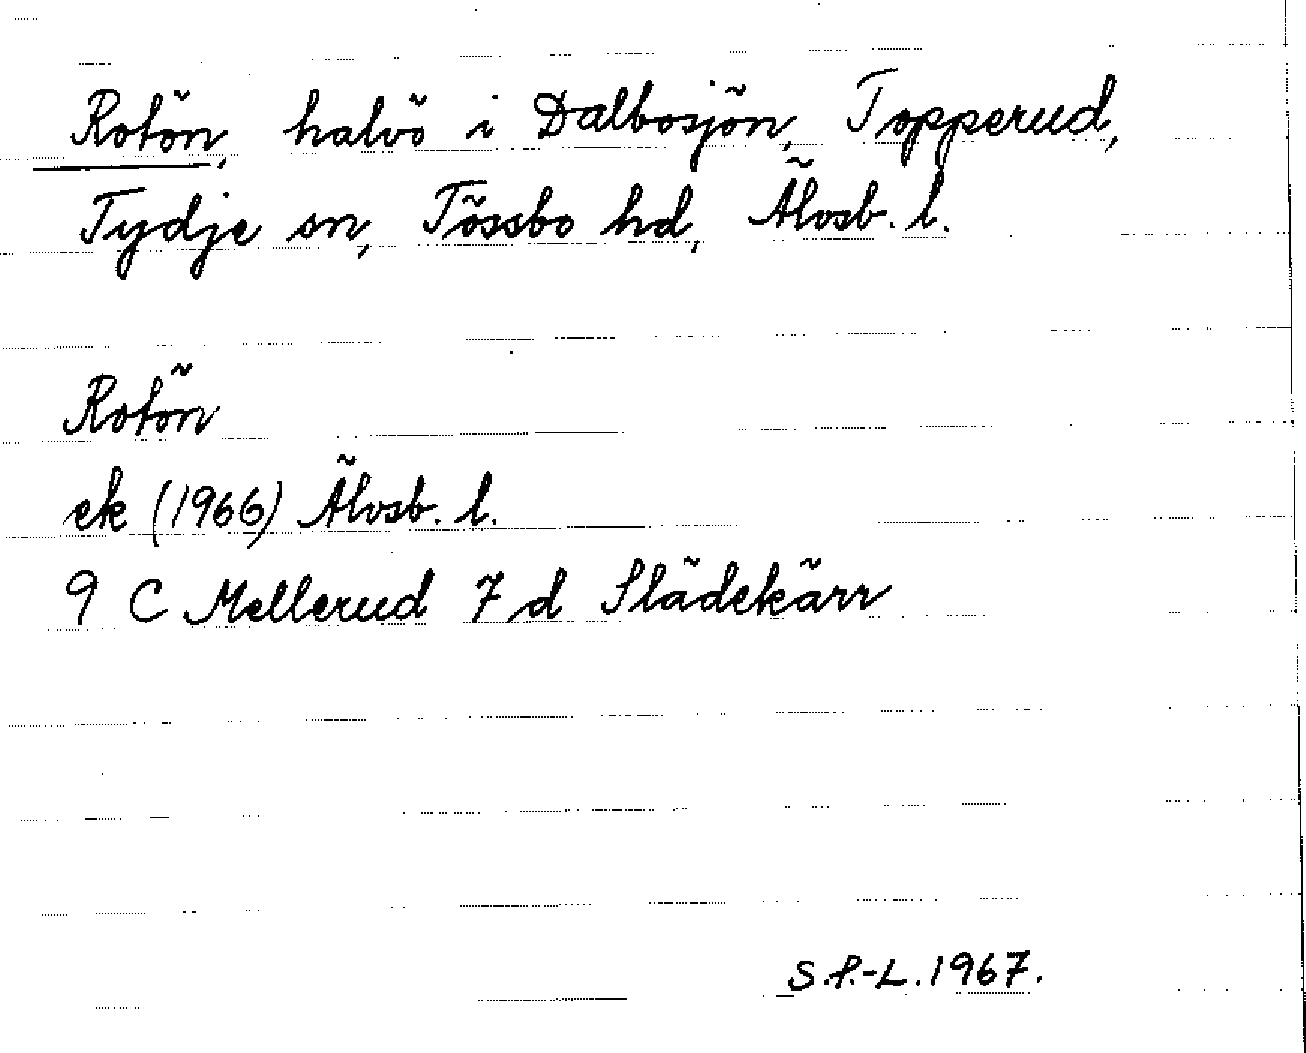 Rotön, halvö i Dalbosjön, Topperud,
Tydje sn, Tössbo hd, Älvsb. l.
Rotön
ek (1966) Älvsb. l.
9 C Mellerud 7 d Slädekärr
S.P.-L. 1967.